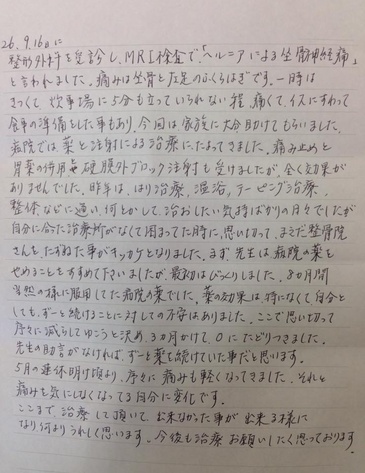 26.9.16日に
整形外科を受診し、MRI検査で、「ヘルニアによる坐骨神経痛」
と言われました。痛みは坐骨と左足のふくらはぎです。一時は
きつくて炊事場に5分も立っていられない程、痛くて、イスにすわって
食事の準備をした事もあり、今回は家族に大分助けてもらいました。
病院では、薬と注射による治療になってきました。痛み止めと
胃薬の併用、硬膜外ブロック注射も受けましたが、全く効果が
ありませんでした。昨年は、はり治療、温浴、テーピング治療、
整体などに通い、何とかして、治おしたい気持ばかりの月々でしたが
自分に合った治療所がなくて困まってた時に、思い切って、まえだ整骨院
さんを、たずねた事がキッカケとなりました。まず先生は病院の薬を
やめることをすすめて下さいましたが、最初はびっくりしました。8ヵ月間
当然の様に服用してた病院の薬でした。薬の効果は特になくて自分と
しても、ずーと続けることに対しての不安はありました。ここで思い切って
序々に減らしてゆこうと決め、3ヵ月かけて、0にたどりつきました。
先生の助言がなければ、ずーと薬を続けていた事だと思います。
5月の連休明け頃より、序々に痛みも軽くなってきました。それと
痛みを気にしなくなってる自分に変化です。
ここまで、治療して頂いて、出来なかった事が出来る様に
なり何よりうれしく思います。今後も治療お願いしたく思っております。